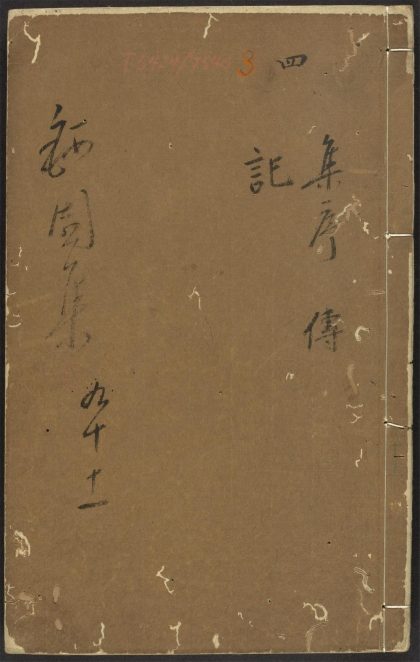 四
3
集序 傳
記
園集 九 十 十一